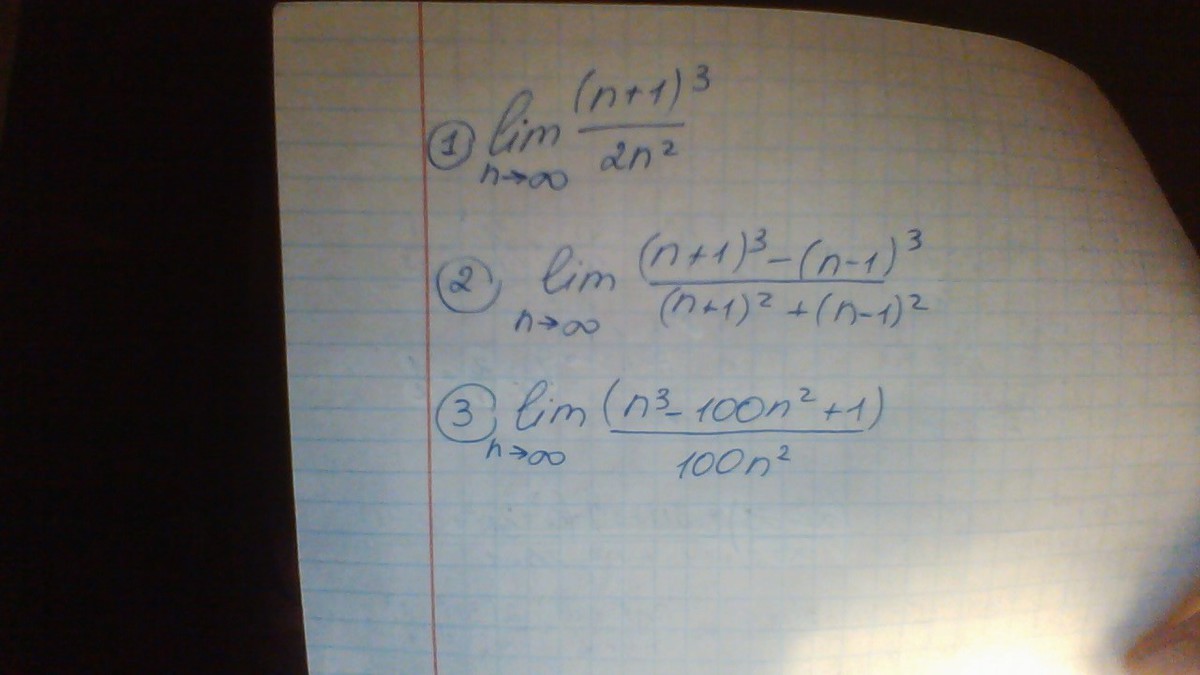 ① lim (n+1)³ / 2n²
n→∞
② lim (n+1)³-(n-1)³ / (n+1)²+(n-1)²
n→∞
③ lim (n³-100n²+1) / 100n²
n→∞